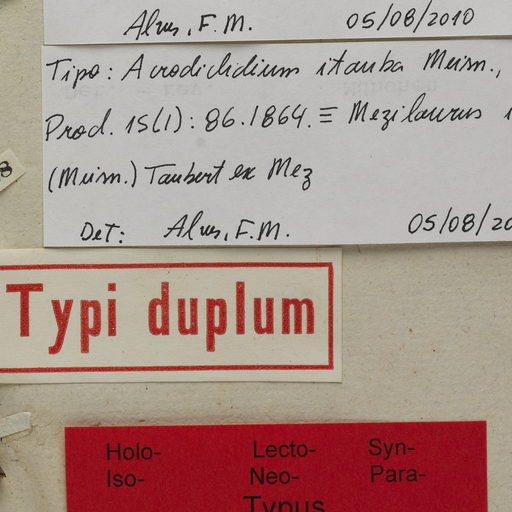 Alves, F.M. 05/08/2010
Tipo: Acrodiclidium itauba Meisn.,
Prod. 15(1): 86. 1864. ≡ Mezilaurus i
(Meisn.) Taubert ex Mez
Det: Alves, F.M. 05/08/20
Typi duplum
Holo- Lecto- Syn-
Iso- Neo- Para-
Typus